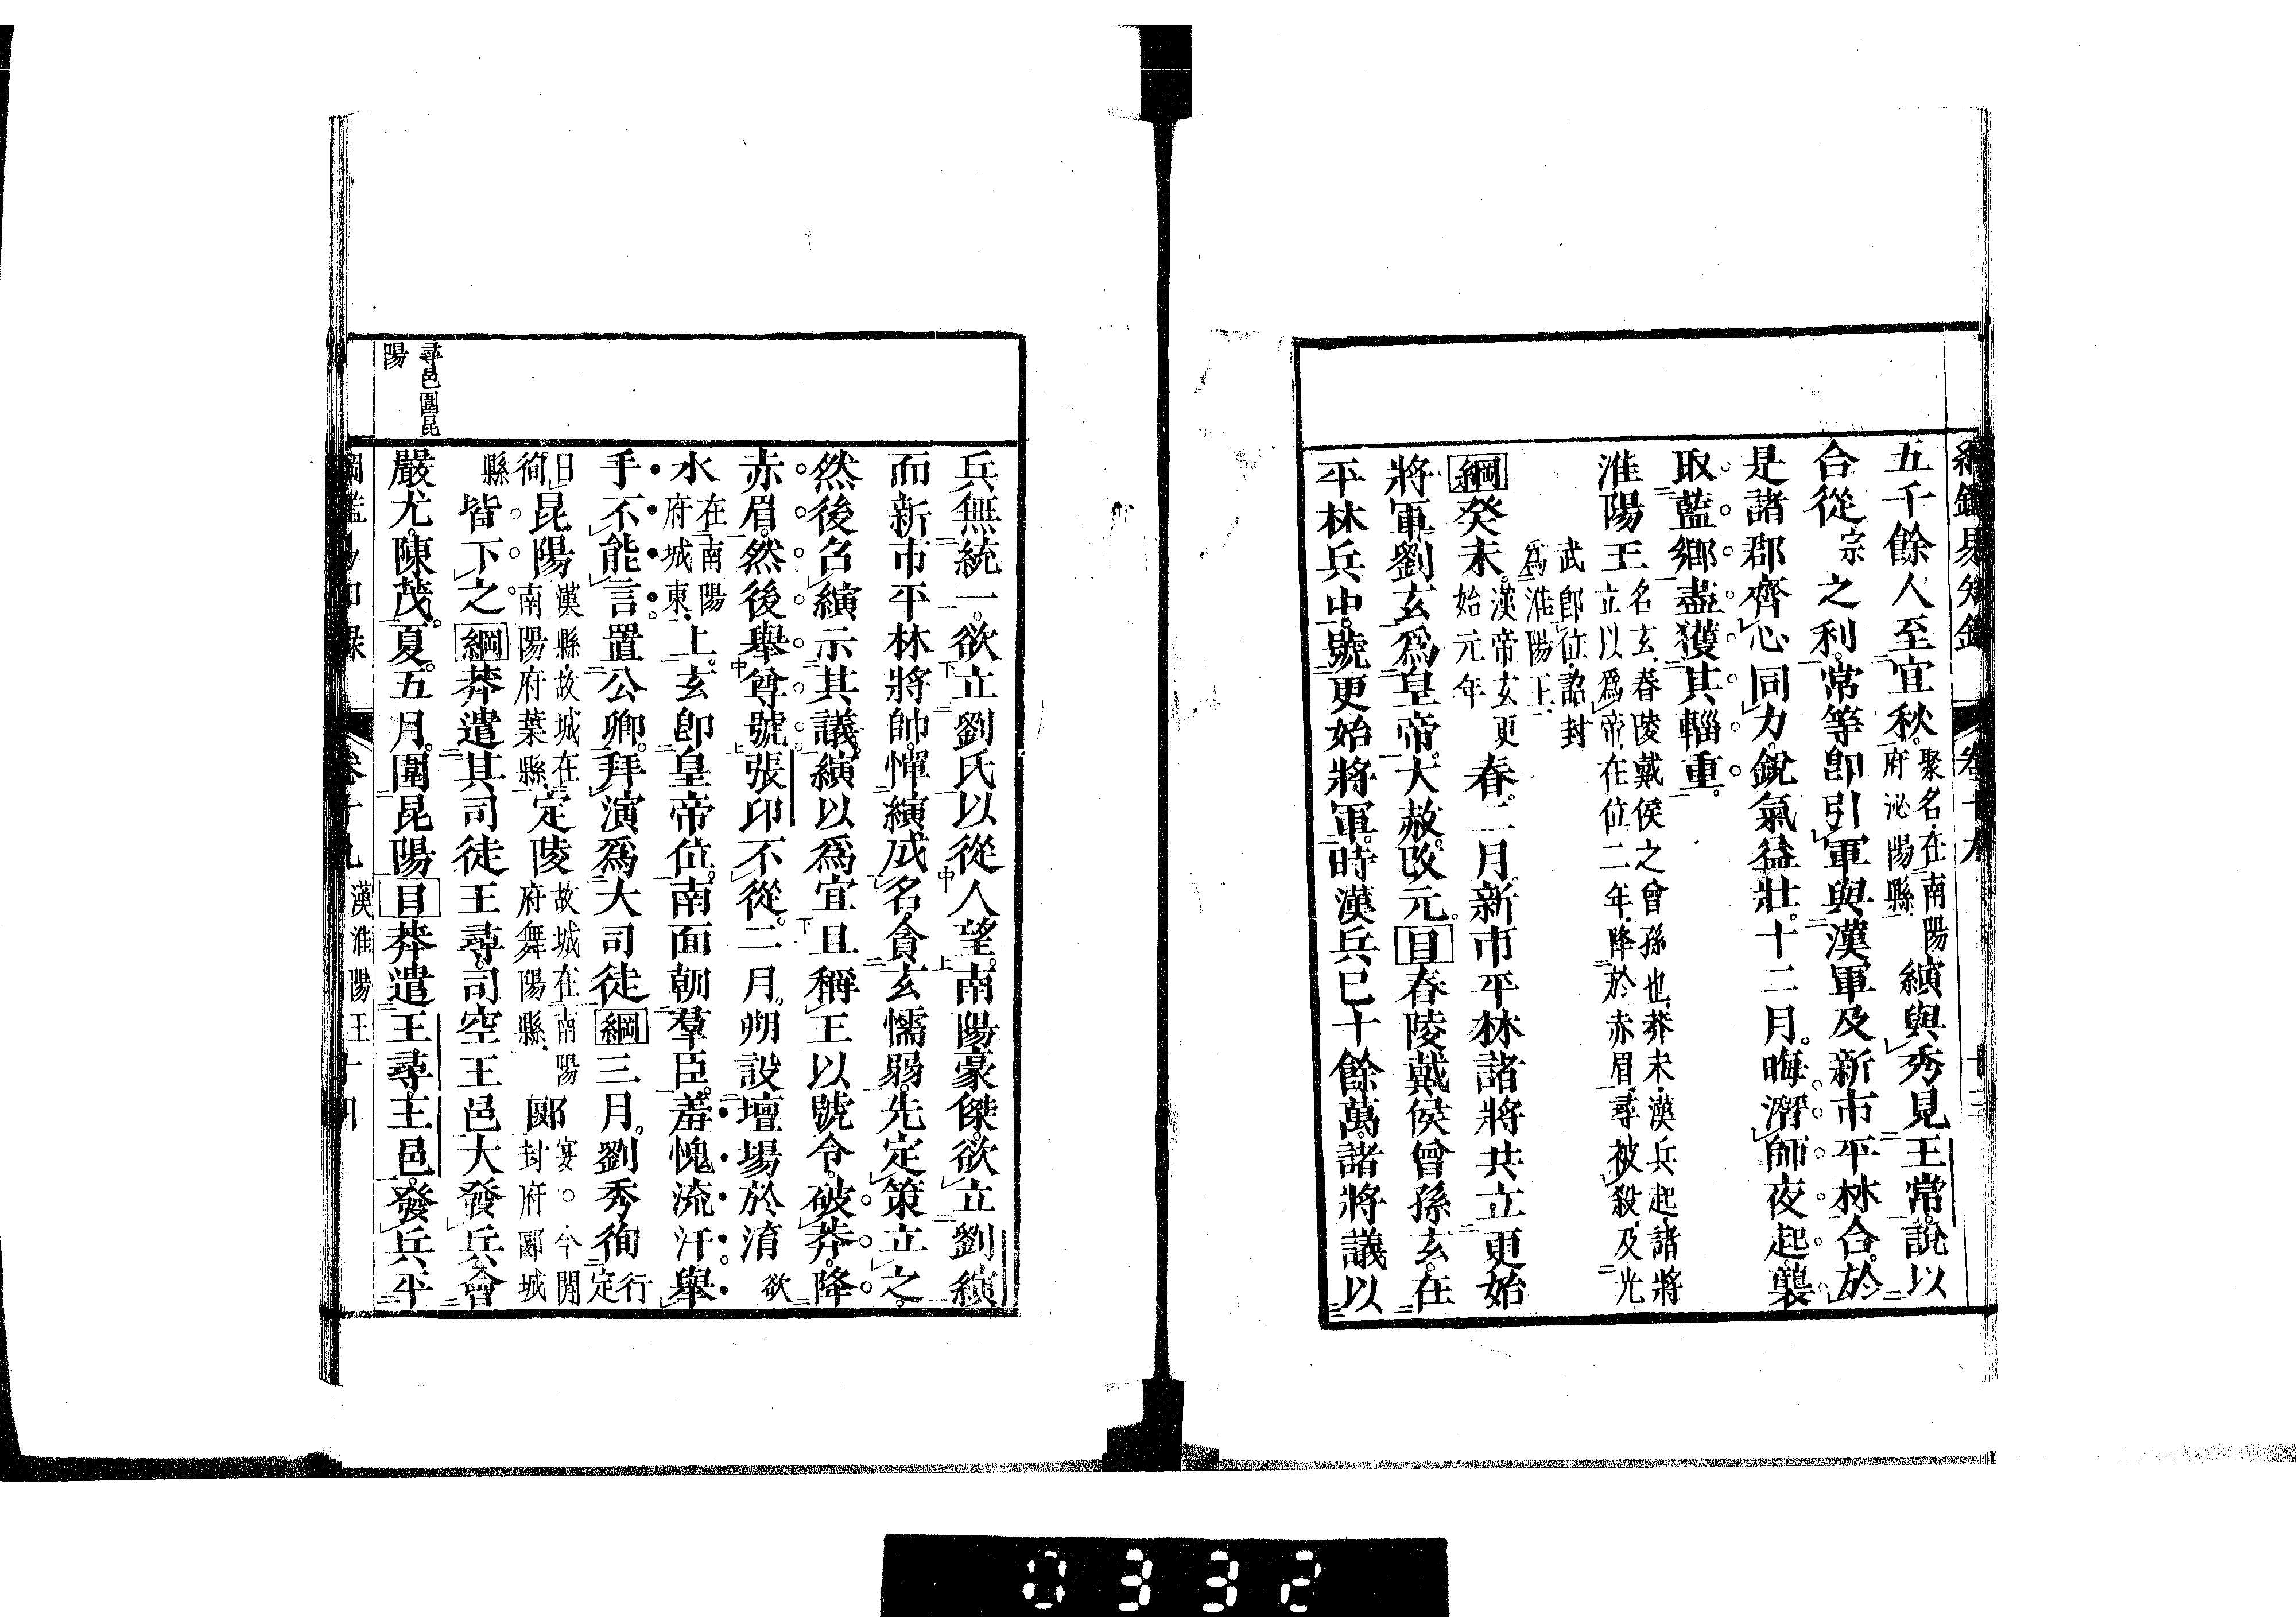 綱鑑易知錄 卷十九
五千餘人至宜秋。聚名、在南陽府泌陽縣、縯與秀見王常。說以
合從宗之利。常等卽引軍與漢軍及新市平林合。於
是諸郡齊心同力。銳氣益壯。十二月。晦。潛師夜起。襲
取藍鄉。盡獲其輜重。
淮陽王名玄、春陵戴侯之曾孫也、莽末、漢兵起、諸將立以爲帝、在位二年、降於赤眉、尋被殺、及光
武卽位、詔封爲淮陽王、
綱癸未。漢帝玄更始元年春。二月新市平林諸將共立更始
將軍劉玄爲皇帝。大赦。改元。目春陵戴侯曾孫玄。在
平林兵中。號更始將軍。時漢兵已十餘萬。諸將議以
兵無統一。欲立劉氏以從人望。南陽豪傑。欲立劉縯
而新市平林將帥。憚縯成名。貪玄懦弱。先定策立之。
然後召縯示其議。縯以爲宜且稱王以號令。破莽。降
赤眉。然後舉尊號。張印不從。二月。朔。設壇場於淯欲
水在南陽府城東、上。玄卽皇帝位。南面朝羣臣。羞愧流汗。舉
手不能言。置公卿。拜演爲大司徒綱三月。劉秀徇行定
曰徇、昆陽漢縣故城在南陽府葉縣、定陵故城在南陽府舞陽縣、郾宴。今開封府郾城
縣皆下之綱莽遣其司徒王尋。司空王邑大發兵。會
嚴尤。陳茂。夏。五月。圍昆陽目莽遣王尋。王邑。發兵平
尋邑圍昆
陽
卷十九 漢淮陽王
0332